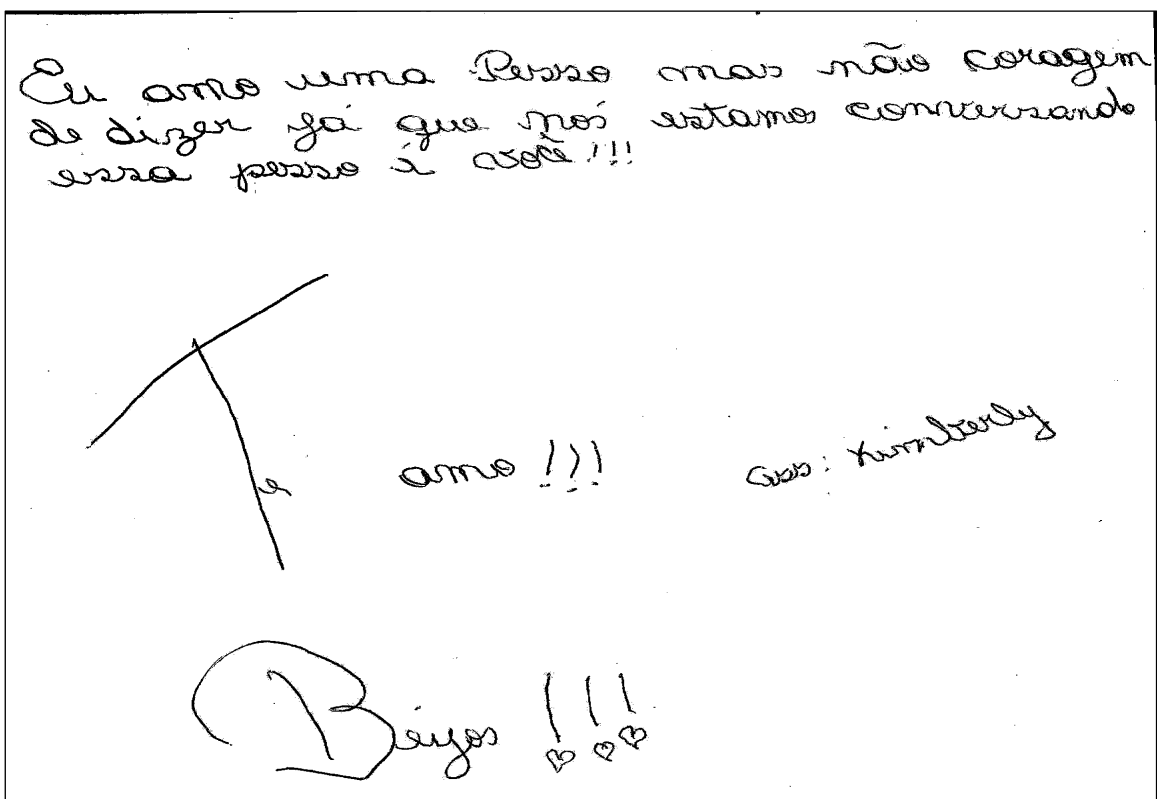 Eu amo uma Pesso mas não coragem
de dizer já que nós estamos conversando
essa pesso é você!!!
Te amo!!!
ass: Kimberly
Beijos!!!